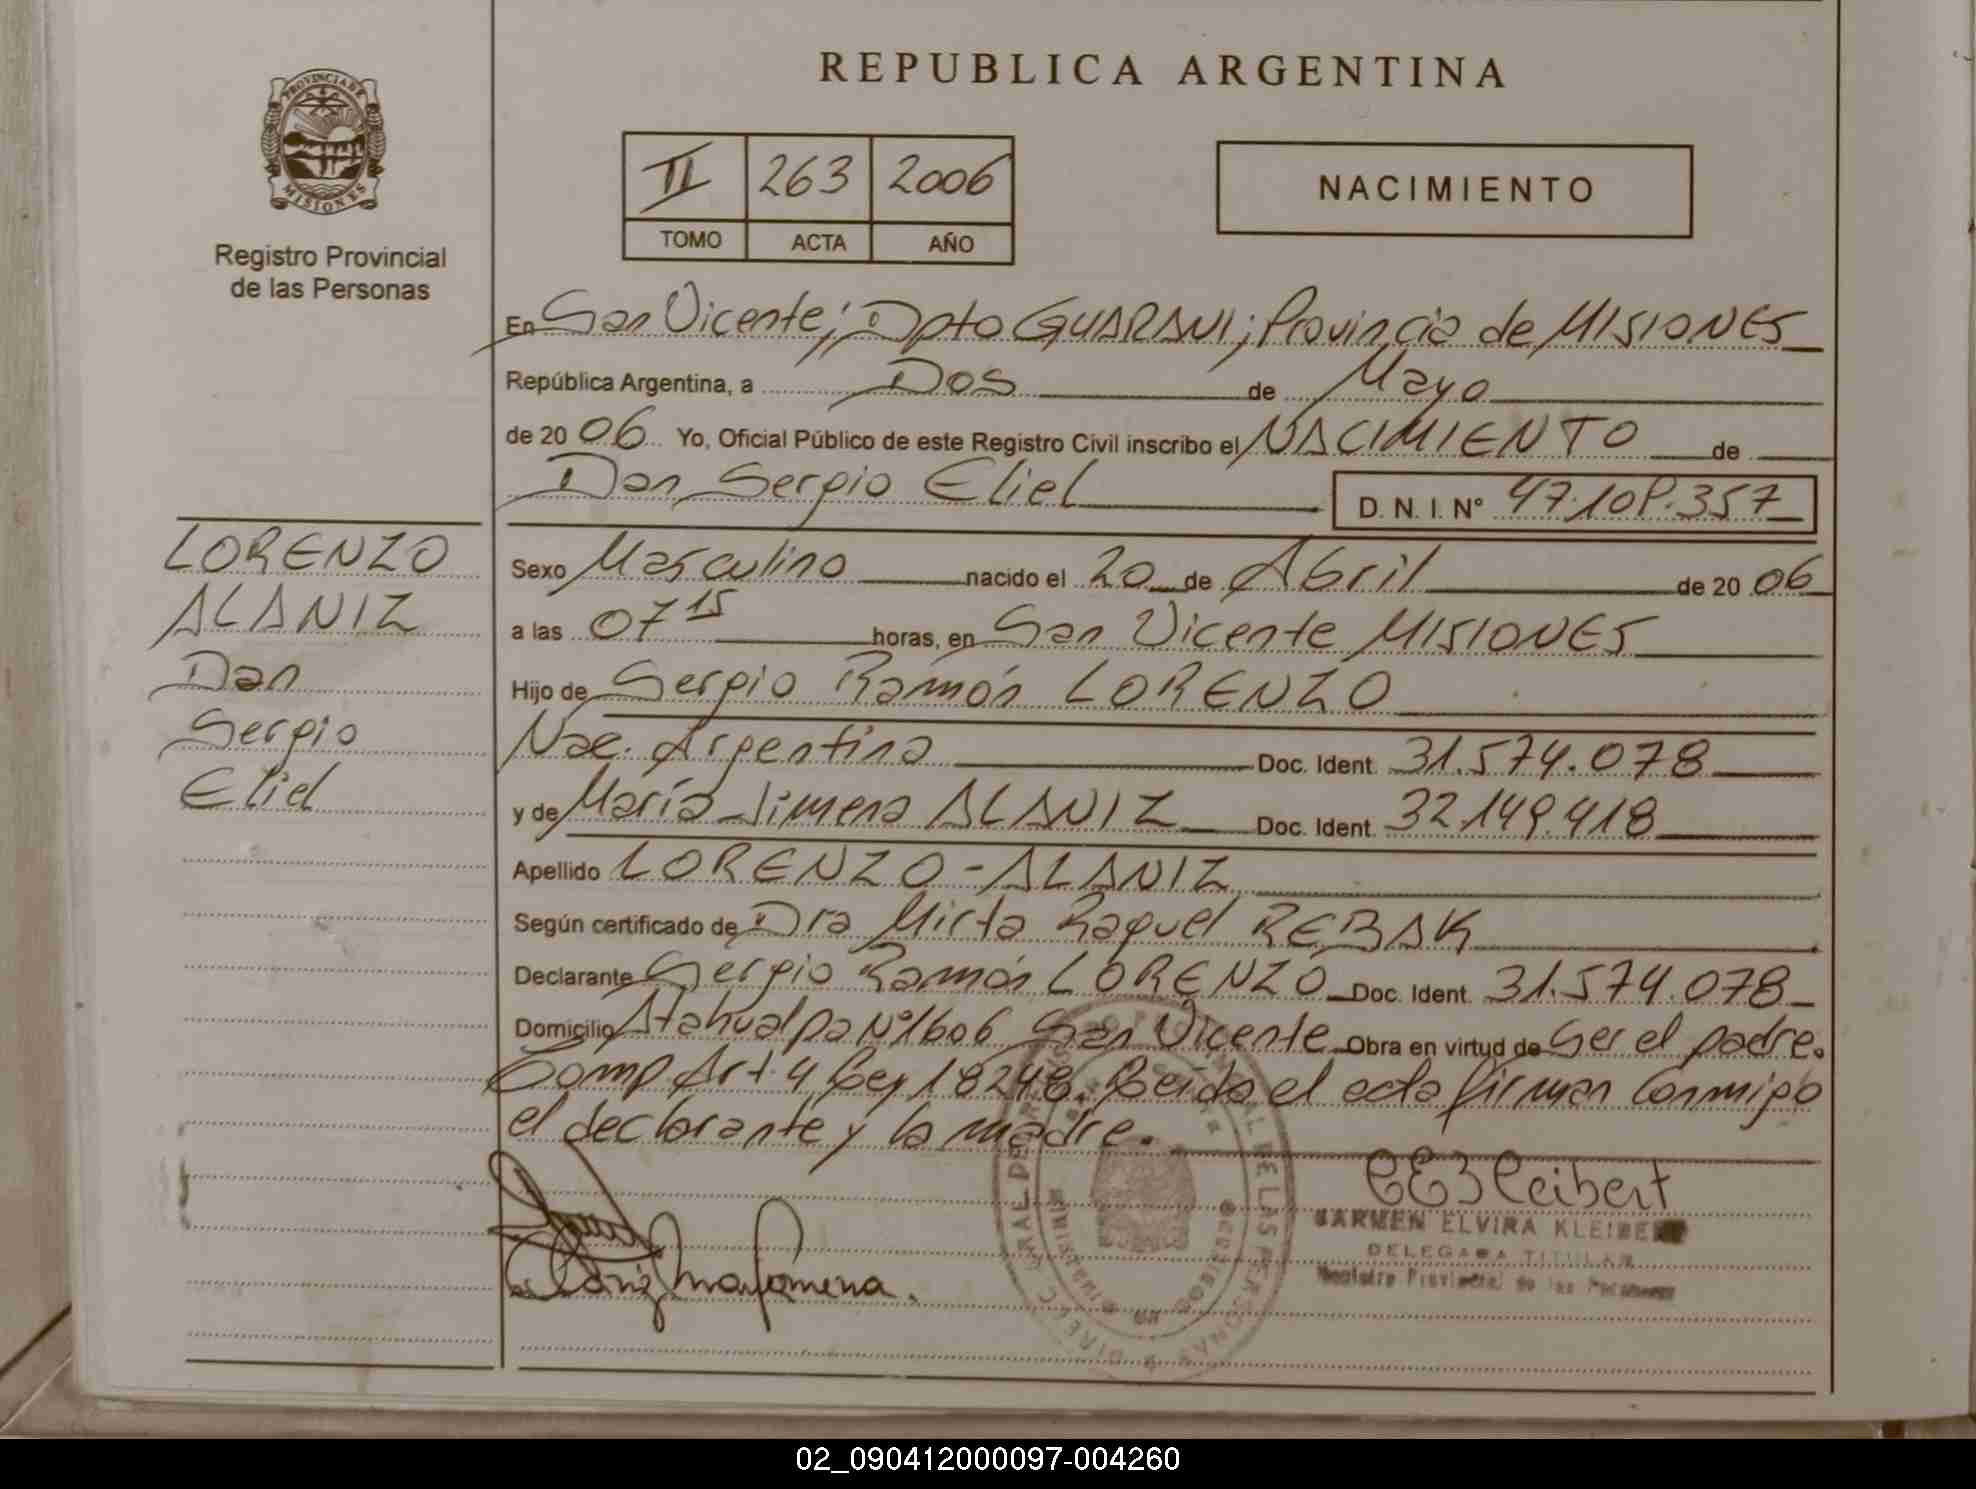 REPUBLICA ARGENTINA
PROVINCIA DE
MISIONES
Registro Provincial
de las Personas
II 263 2006
TOMO ACTA AÑO
NACIMIENTO
En San Vicente; Dpto GUARANI; Provincia de MISIONES
República Argentina, a Dos de Mayo
de 20 06 Yo, Oficial Público de este Registro Civil inscribo el NACIMIENTO de
Dan Sergio Eliel D. N. I. Nº 47.108.357
LORENZO
ALANIZ
Dan
Sergio
Eliel
Sexo Masculino nacido el 20 de Abril de 20 06
a las 07 15 horas, en San Vicente MISIONES
Hijo de Sergio Ramón LORENZO
Nac. Argentina Doc. Ident. 31.574.078
y de María Jimena ALANIZ Doc. Ident. 32.149.418
Apellido LORENZO-ALANIZ
Según certificado de Dra Mirta Raquel REBAK
Declarante Sergio Ramón LORENZO Doc. Ident. 31.574.078
Domicilio Atahualpa Nº 1606 San Vicente Obra en virtud de Ser el padre.
Comp. Art. 4 Ley 18248. Leída el acta firman conmigo
el declarante y la madre.
CARMEN ELVIRA KLEIBERT
DELEGADA TITULAR
Registro Provincial de las Personas
02_090412000097-004260